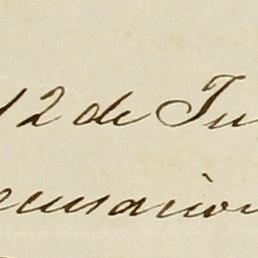 12 de Ju
ecusacion